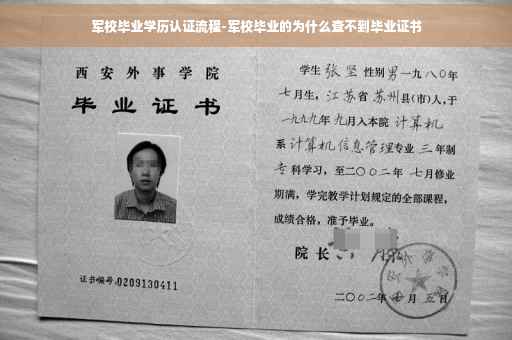 军校毕业学历认证流程-军校毕业的为什么查不到毕业证书
西安外事学院
毕业证书
证书编号:0209130411
学生 张坚 性别 男 一九八〇年
七月生,江苏省苏州县(市)人,于
一九九九年九月入本院 计算机
系 计算机信息管理专业 三年制
专科学习,至二〇〇二年 七月修业
期满,学完教学计划规定的全部课程,
成绩合格,准予毕业。
院长
二〇〇二年 月五日